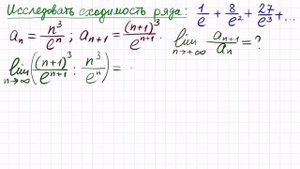 Исследовать сходимость ряда: 1/e + 8/e² + 27/e³ + ...
aₙ = n³/eⁿ ; aₙ₊₁ = (n+1)³/eⁿ⁺¹. lim n→+∞ aₙ₊₁/aₙ = ?
lim n→∞ ((n+1)³/eⁿ⁺¹ : n³/eⁿ) =